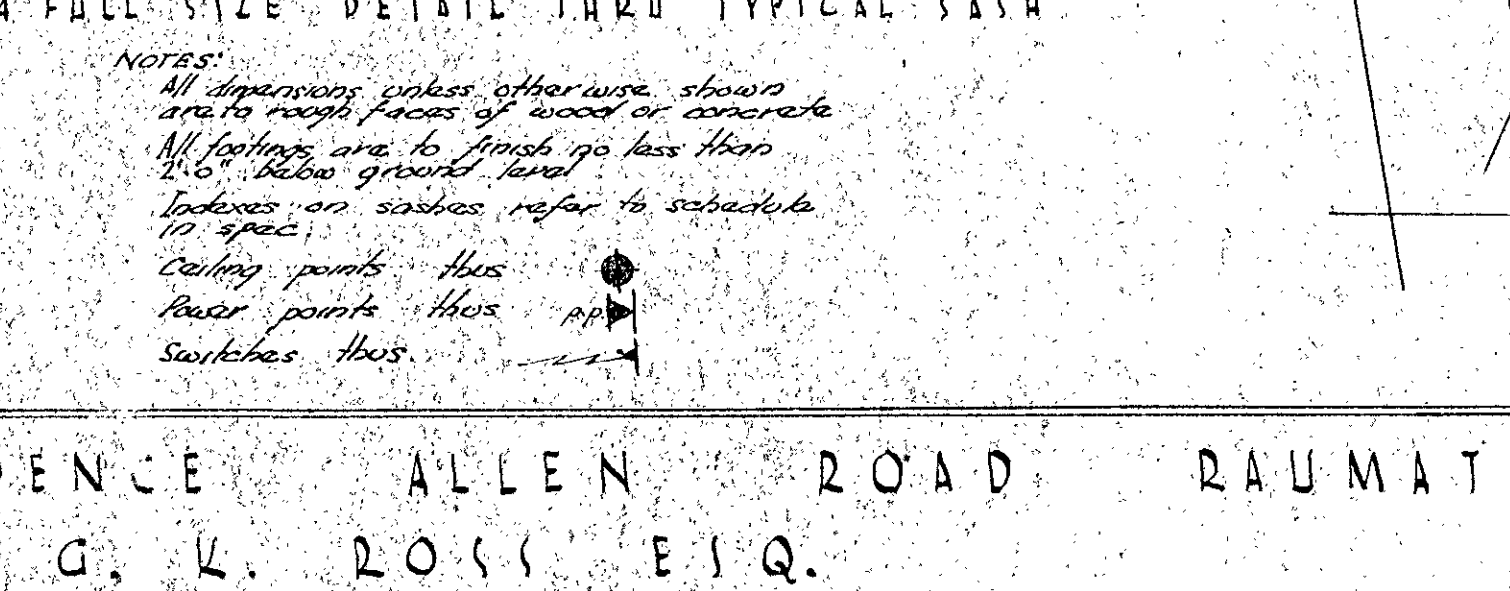 4 FULL SIZE DETAIL THRU TYPICAL SASH
NOTES:
All dimensions unless otherwise shown
are to rough faces of wood or concrete
All footings are to finish no less than
2'·0" below ground level
Indexes on sashes refer to schedule
in spec.
Ceiling points thus
Power points thus p.p.
Switches thus.
DENCE ALLEN ROAD RAUMAT
G. K. ROSS ESQ.